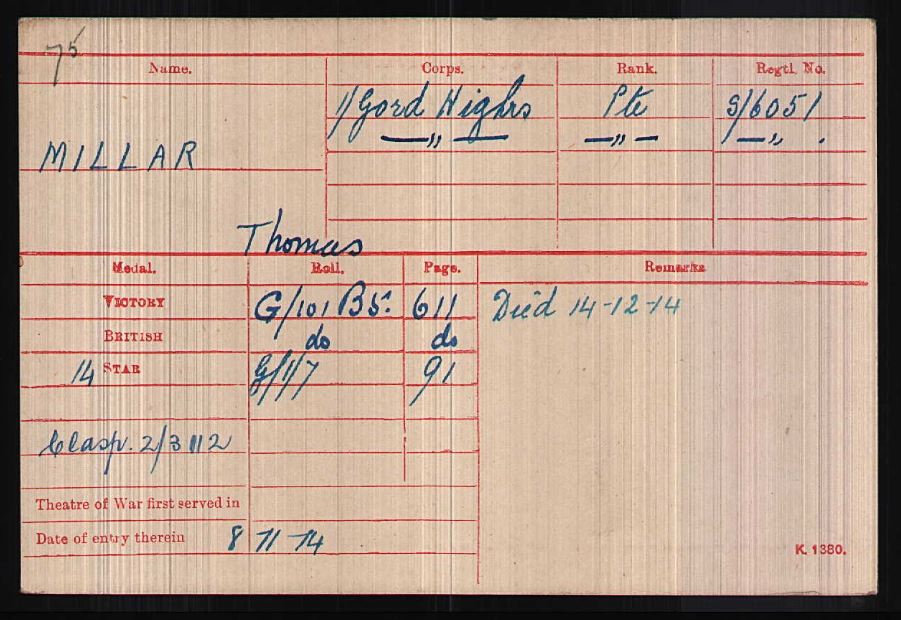 75
Name. Corps. Rank. Regtl. No.
1/Gord Highrs Pte S/6051
MILLAR —〃— —〃— —〃— .
Thomas
Medal. Roll. Page. Remarks
VICTORY G/101 B5. 611 Died 14-12-14
BRITISH do do
14 STAR G/1/7 91
Clasp. 2/3112
Theatre of War first served in
Date of entry therein 8-11-14
K. 1380.